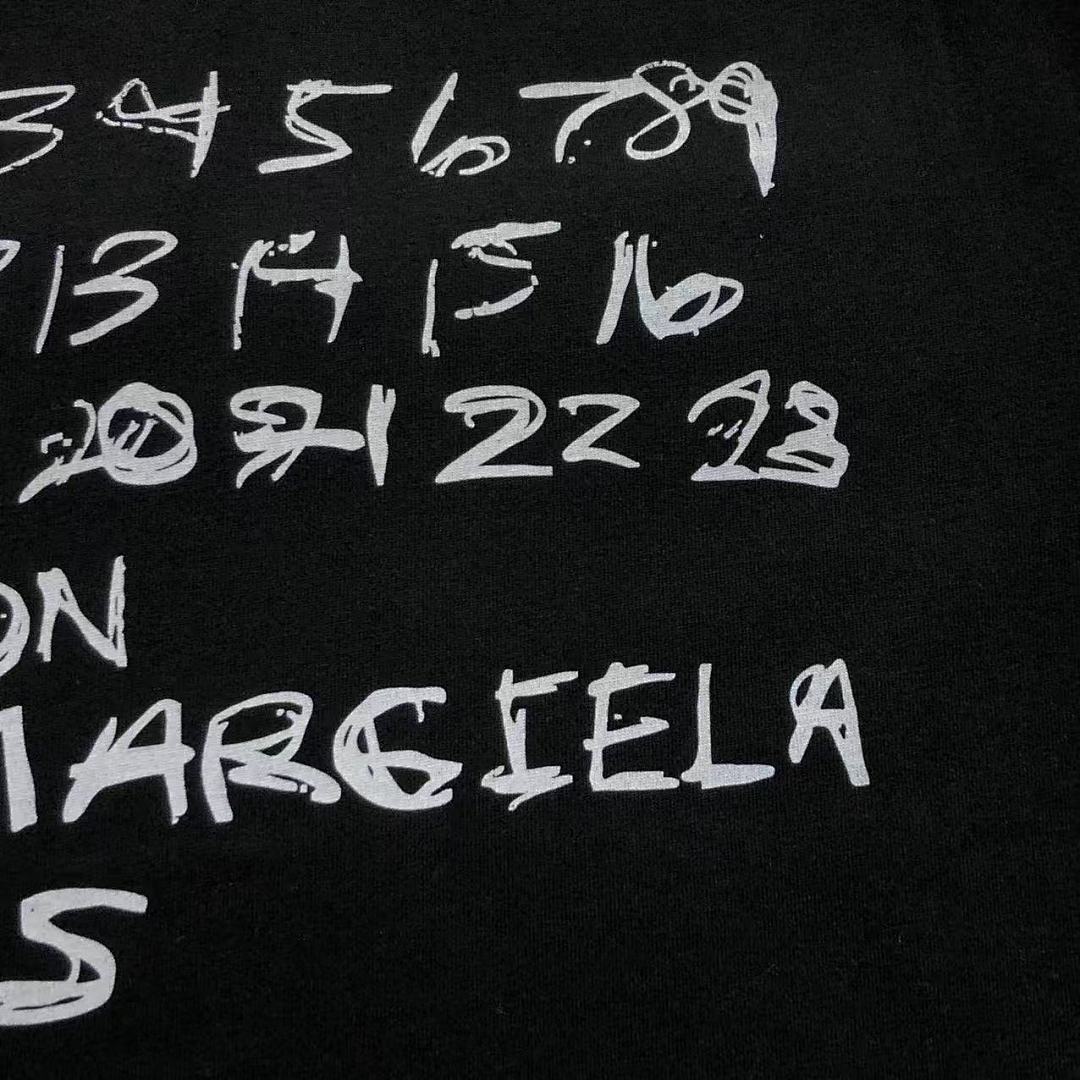 3 4 5 6 7 8 9
13 14 15 16
20 21 22 23
ON
MARGIELA
S